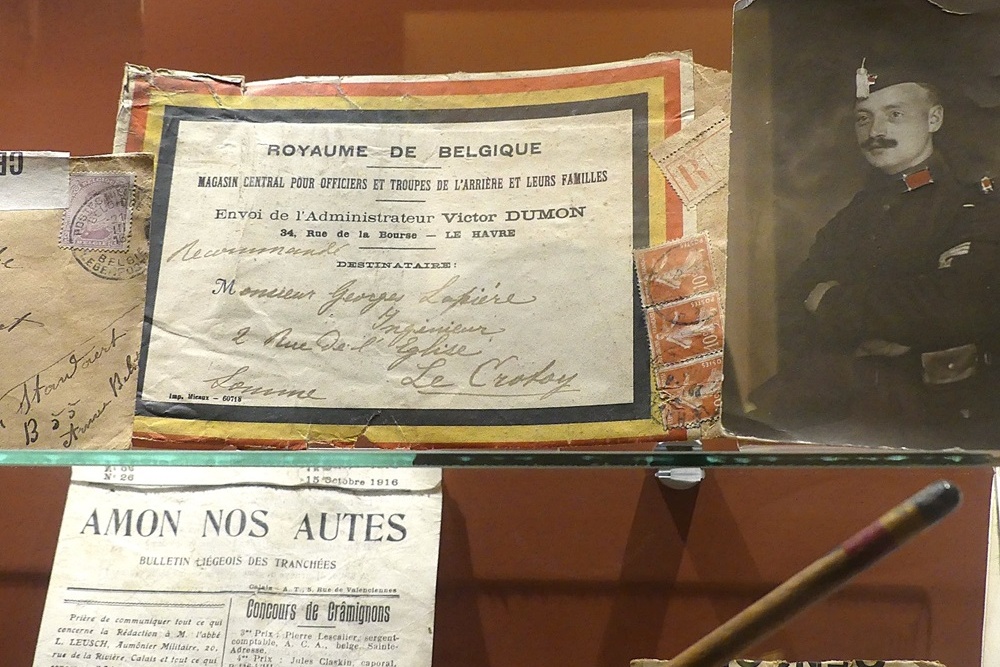 ROYAUME DE BELGIQUE
MAGASIN CENTRAL POUR OFFICIERS ET TROUPES DE L'ARRIÈRE ET LEURS FAMILLES
Envoi de l'Administrateur Victor DUMON
34, Rue de la Bourse — LE HAVRE
Recommandé
DESTINATAIRE:
Monsieur Georges Lapière
Ingénieur
2 Rue De l'Eglise
Le Crotoy
Somme
Imp. Micaux - 60718
R
POSTES
10
10
BELGI
Standaert
B 55
N° 26
15 Octobre 1916
AMON NOS AUTES
BULLETIN LIÉGEOIS DES TRANCHÉES
Calais - A. T., 5, Rue de Valenciennes
Prière de communiquer tout ce qui
concerne la Rédaction à M. l'abbé
L. LEUSCH, Aumônier Militaire, 20,
rue de la Rivière, Calais et tout ce qui
Concours de Crâmignons
3me Prix : Pierre Lescalier, sergent-
comptable, A. C. A., belge, Sainte-
Adresse.
4me Prix : Jules Claskin, caporal,